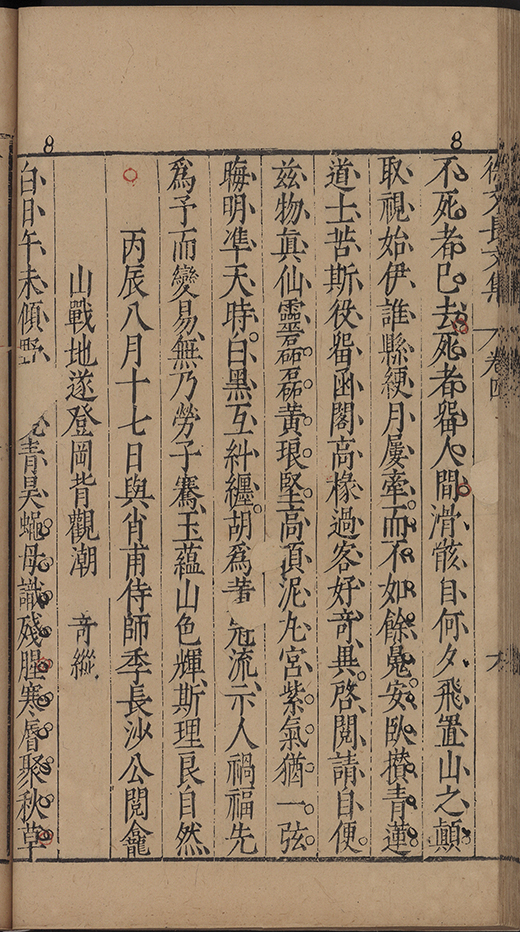 8
8
徐文長文集
卷四
不死者已去死者畱人間滑骸自何夕飛置山之顛
取視始伊誰縣綆月屢牽而不如餘鳧安臥攢青蓮
道士苦斯役畱函閣高椽過客好竒異啓閱請自便
茲物真仙靈磊磊黃琅堅高頂泥丸宮紫氣猶一弦
晦明準天時白黑互糾纏胡爲著 流示人禍福先
爲子而變易無乃勞子騫玉蘊山色輝斯理良自然
丙辰八月十七日與肖甫侍師季長沙公閱龕
山戰地遂登岡背觀潮 竒縱
白日午未傾野 青昊蠅母識殘腥寒唇聚秋草